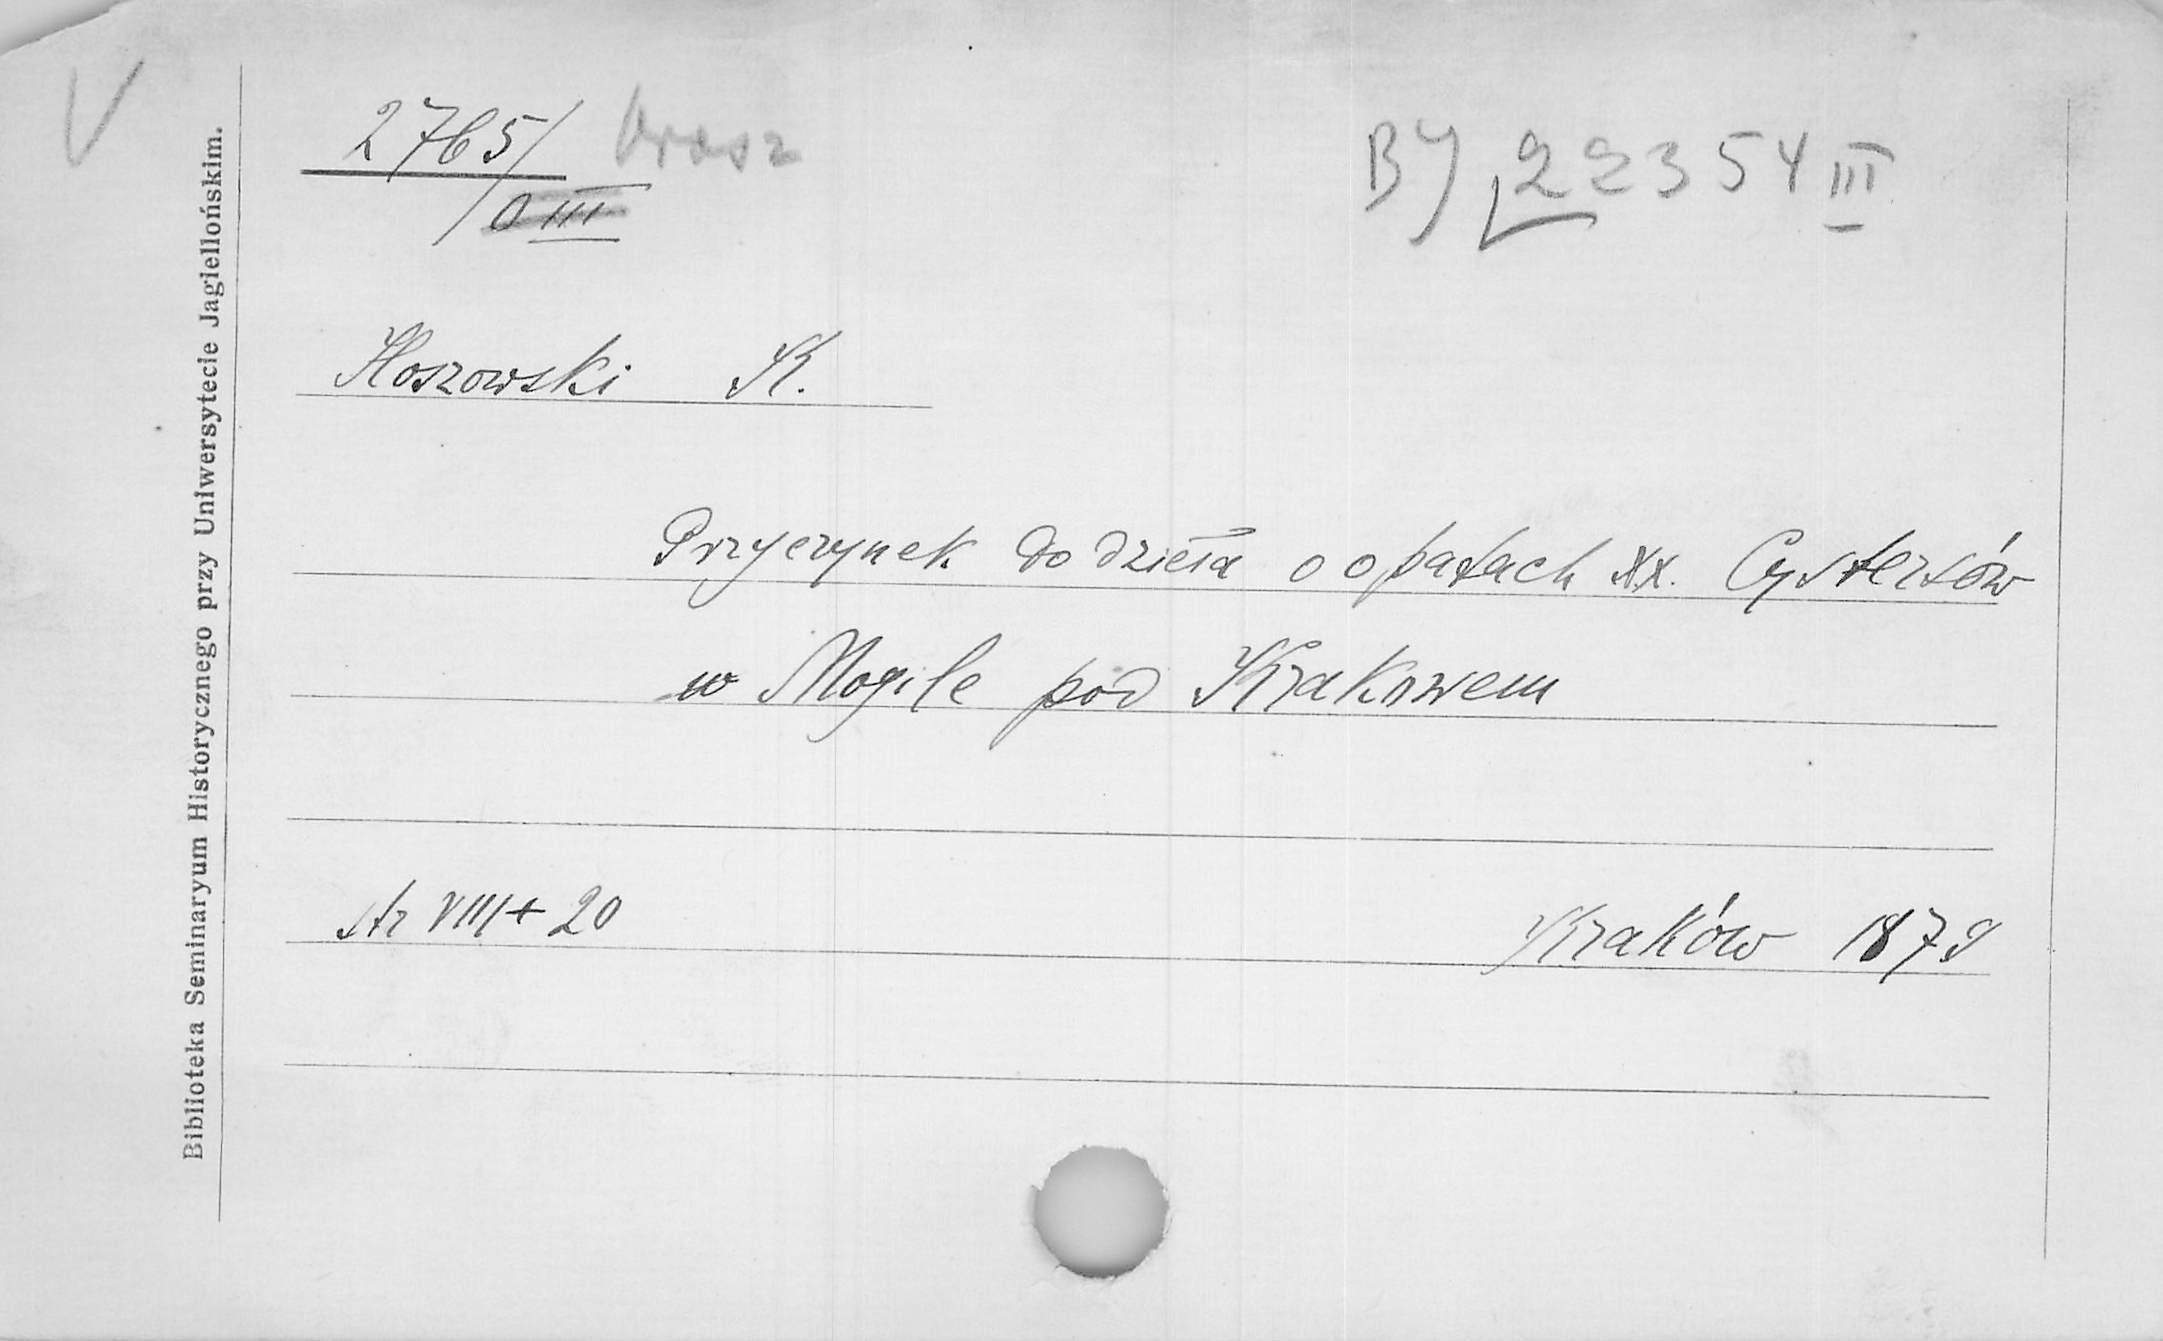 V
2765/ brosz
O III
BJ 22354 III
Hoszowski K.
Przyczynek do dzieła o opatach XX. Cystersów
w Mogile pod Krakowem
str VIII + 20
Kraków 1879
Biblioteka Seminaryum Historycznego przy Uniwersytecie Jagiellońskim.